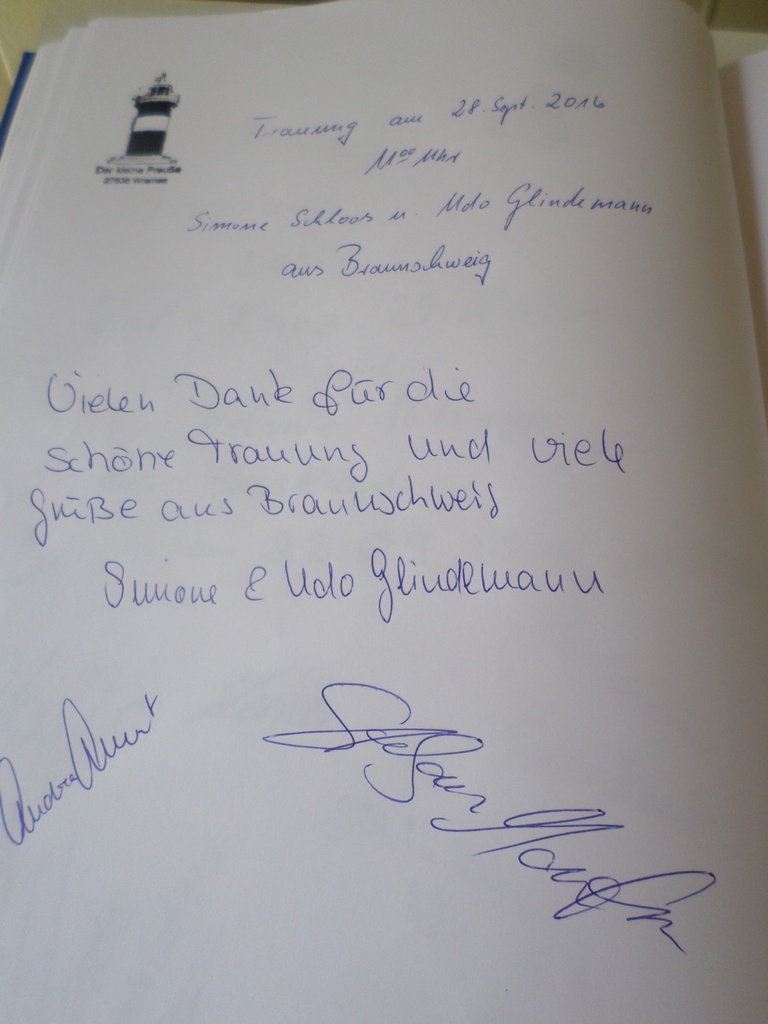 Der kleine Preuße
27638 Wremen
Trauung am 28. Sept. 2016
11⁰⁰ Uhr
Simone Schloos u. Udo Glindemann
aus Braunschweig
Vielen Dank für die
schöne Trauung und viele
Grüße aus Braunschweig
Simone & Udo Glindemann
Stefan